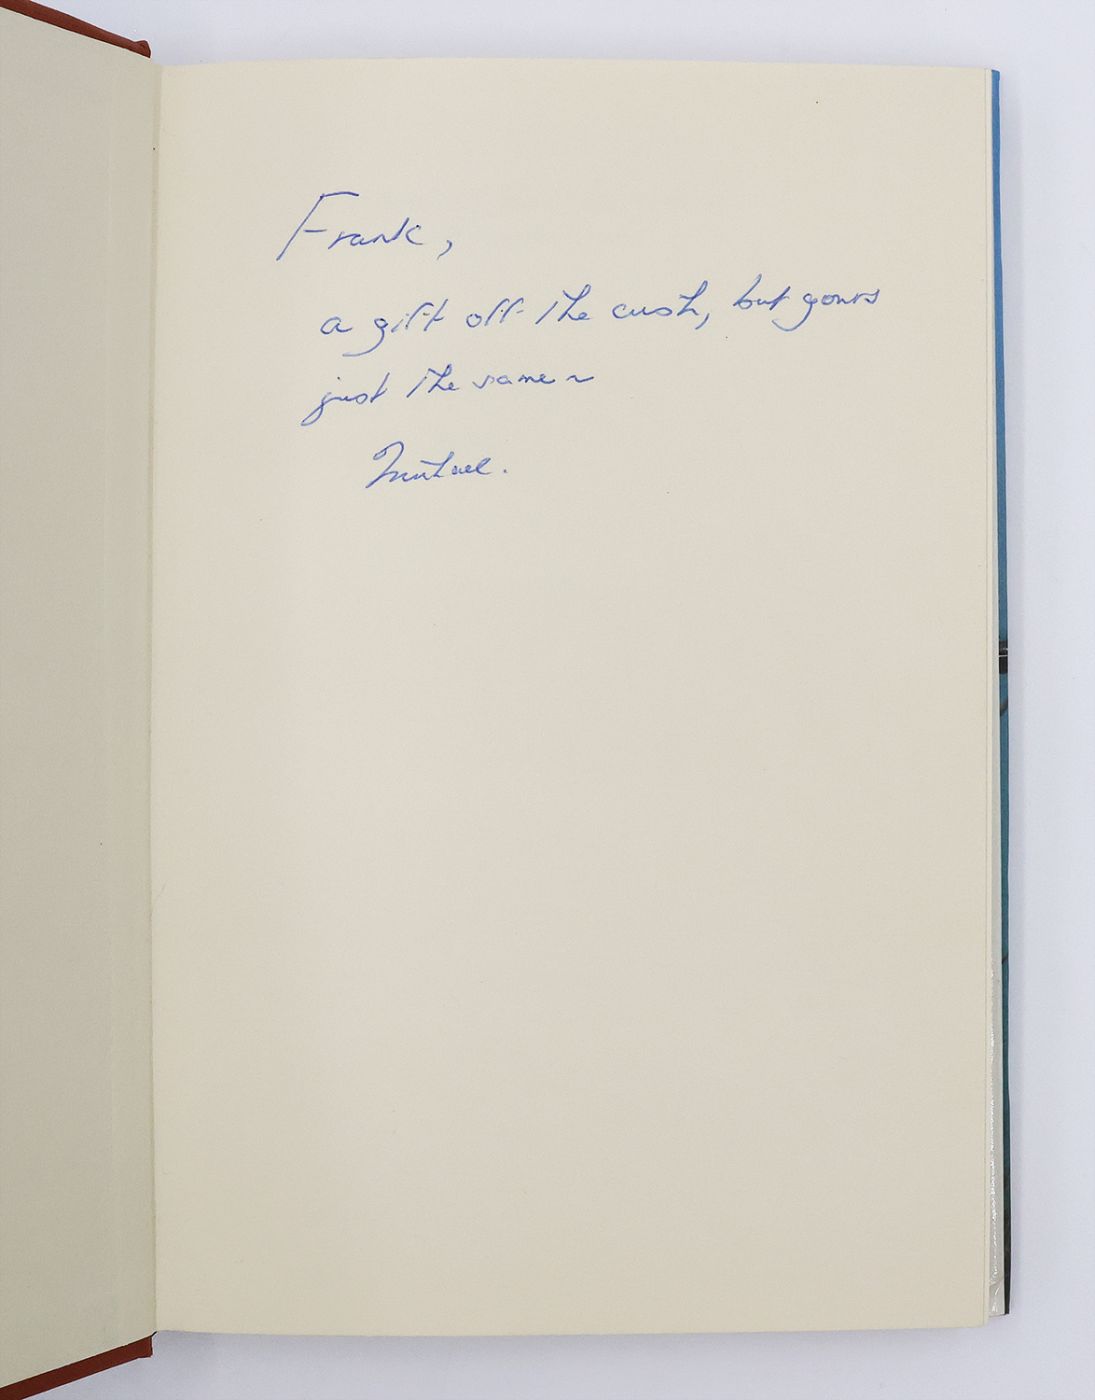 Frank,
a gift off the cush, but yours
just the same ~
Michael.